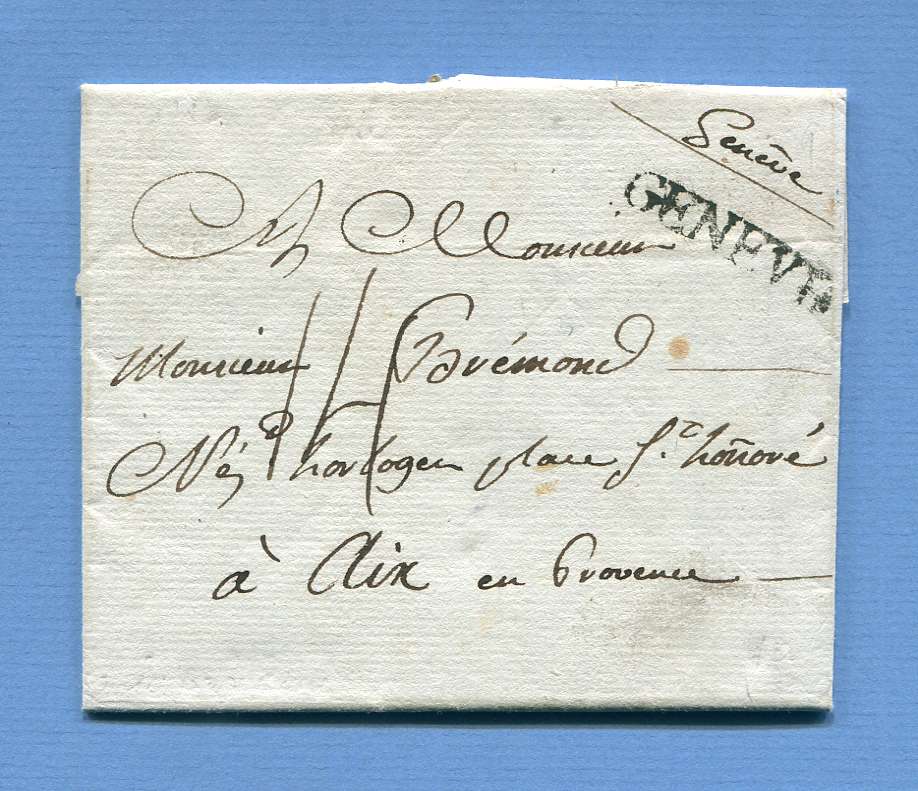 Genève
GENEVE
A Monsieur
Monsieur Brémond
Nég.^t horloger place S.^t honoré
à Aix en Provence
14